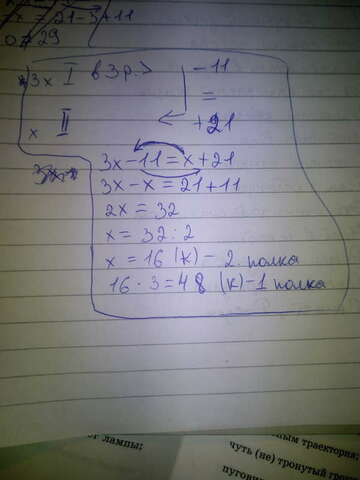 x = 21-3+11
0 29
3x I в 3 р. > -11
=
x II < +21
3x-11=x+21
3x-x=21+11
2x=32
x=32:2
x=16 (к) - 2. полка
16 · 3=48 (к)-1 полка
лампы;
траектория;
чуть (не) тронутый
пугови